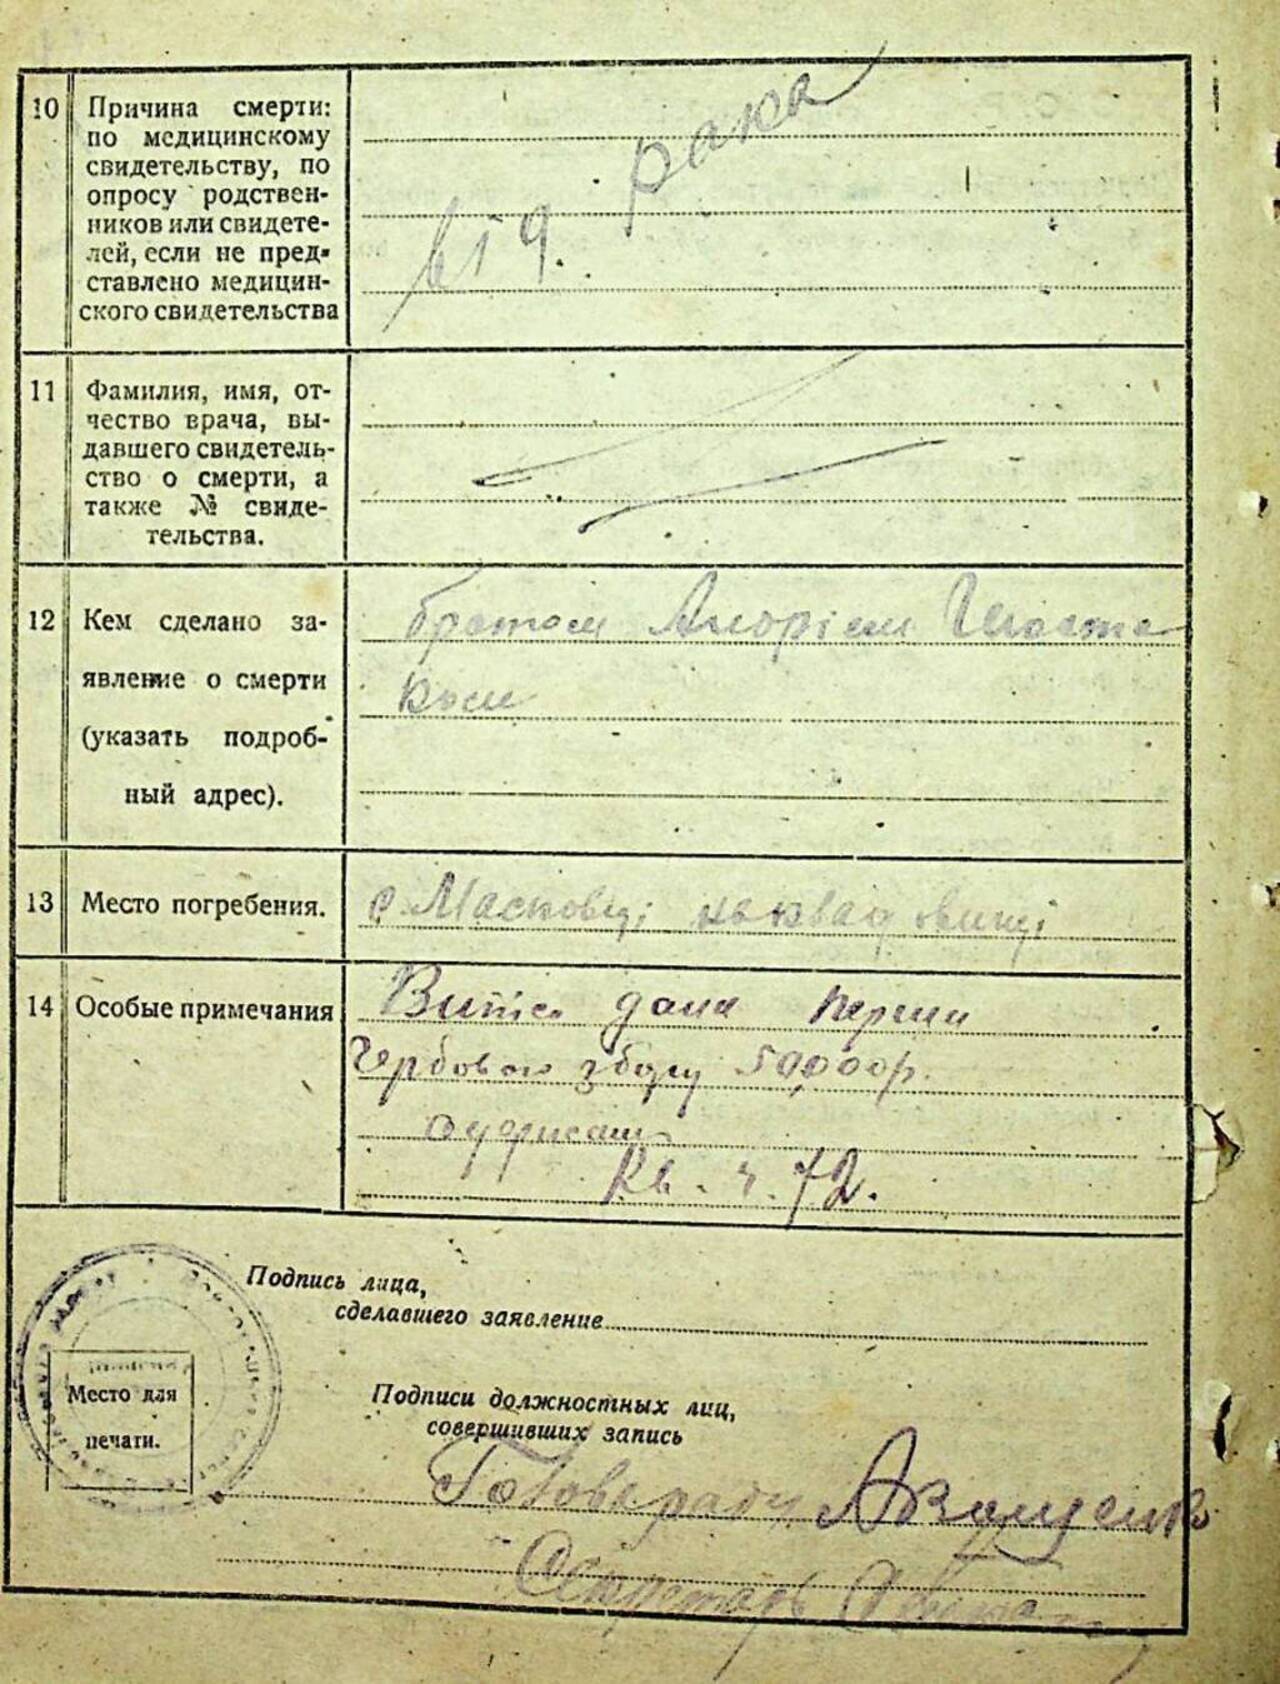 10
Причина смерти:
по медицинскому
свидетельству, по
опросу родствен-
ников или свидете-
лей, если не пред-
ставлено медицин-
ского свидетельства
рака
11
Фамилия, имя, от-
чество врача, вы-
давшего свидетель-
ство о смерти, а
также № свиде-
тельства.
12
Кем сделано за-
явление о смерти
(указать подроб-
ный адрес).
братом Андрієм
ком
13
Место погребения.
с. Масковці
14
Особые примечания
Випис дана перши
Гербового збору 50,000р.
Кв. ч. 72.
Подпись лица,
сделавшего заявление
Место для
печати.
Подписи должностных лиц,
совершивших запись
Голова ради
Секретарь